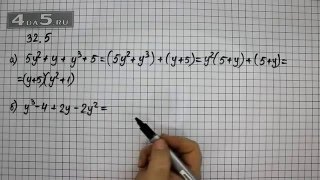 4ДА5.RU
32.5
а) 5y² + y + y³ + 5 = (5y² + y³) + (y + 5) = y²(5 + y) + (5 + y) =
= (y + 5)(y² + 1)
б) y³ - 4 + 2y - 2y² =